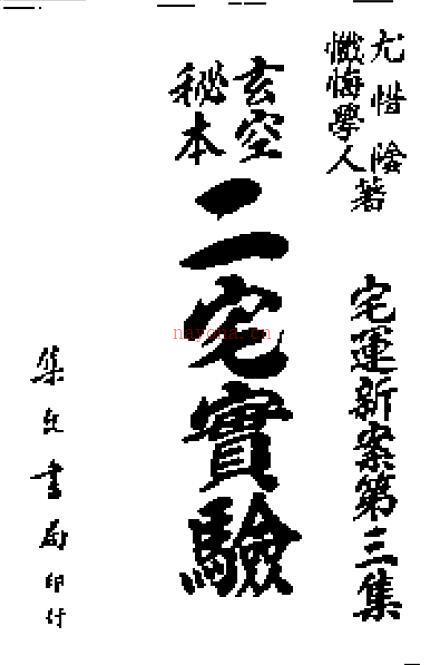 尤惜陰
懺悔學人
著
宅運新案第三集
玄空
秘本
二宅實驗
集文書局印行
nayona.cn